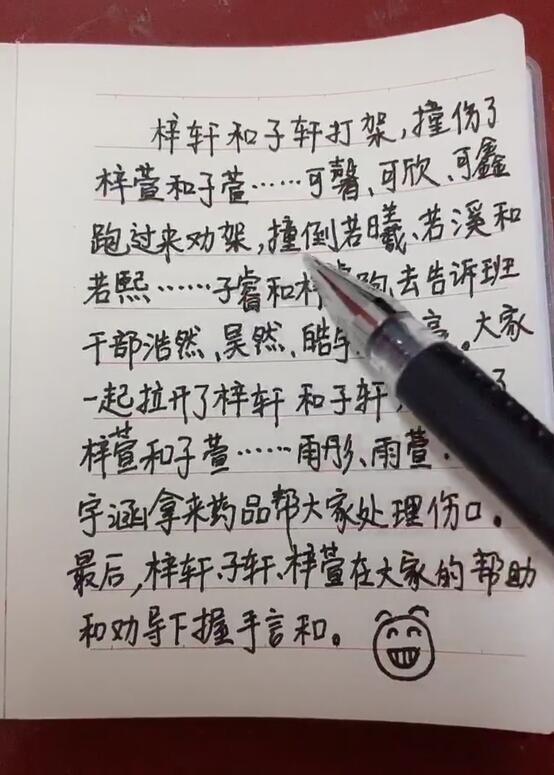 梓轩和子轩打架，撞伤了
梓萱和子萱……可馨、可欣、可鑫
跑过来劝架，撞倒若曦、若溪和
若熙……子睿和梓 跑去告诉班
干部浩然、昊然、皓 。大家
一起拉开了梓轩和子轩， 了
梓萱和子萱……雨彤、雨萱
宇涵拿来药品帮大家处理伤口。
最后，梓轩、子轩、梓萱在大家的帮助
和劝导下握手言和。